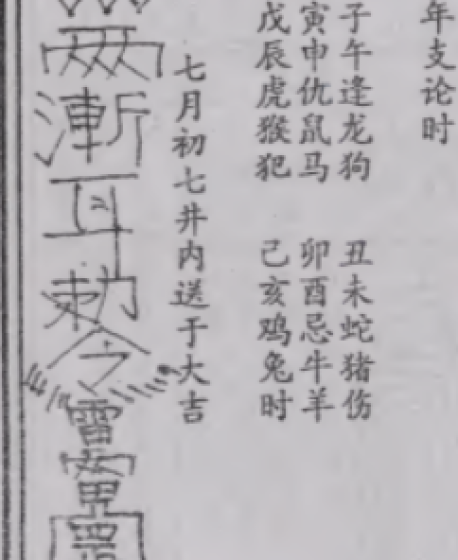 年支论时
子午逢龙狗 丑未蛇猪伤
寅申仇鼠马 卯酉忌牛羊
戊辰虎猴犯 己亥鸡兔时
七月初七井内送于大吉
漸耳勅令雷